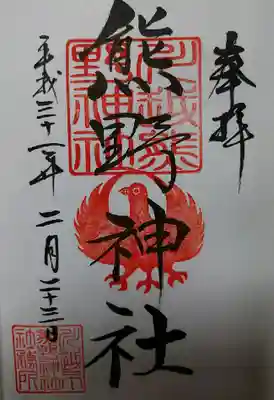 奉拝
川越熊
野神社
熊野神社
平成三十一年 二月二十三日